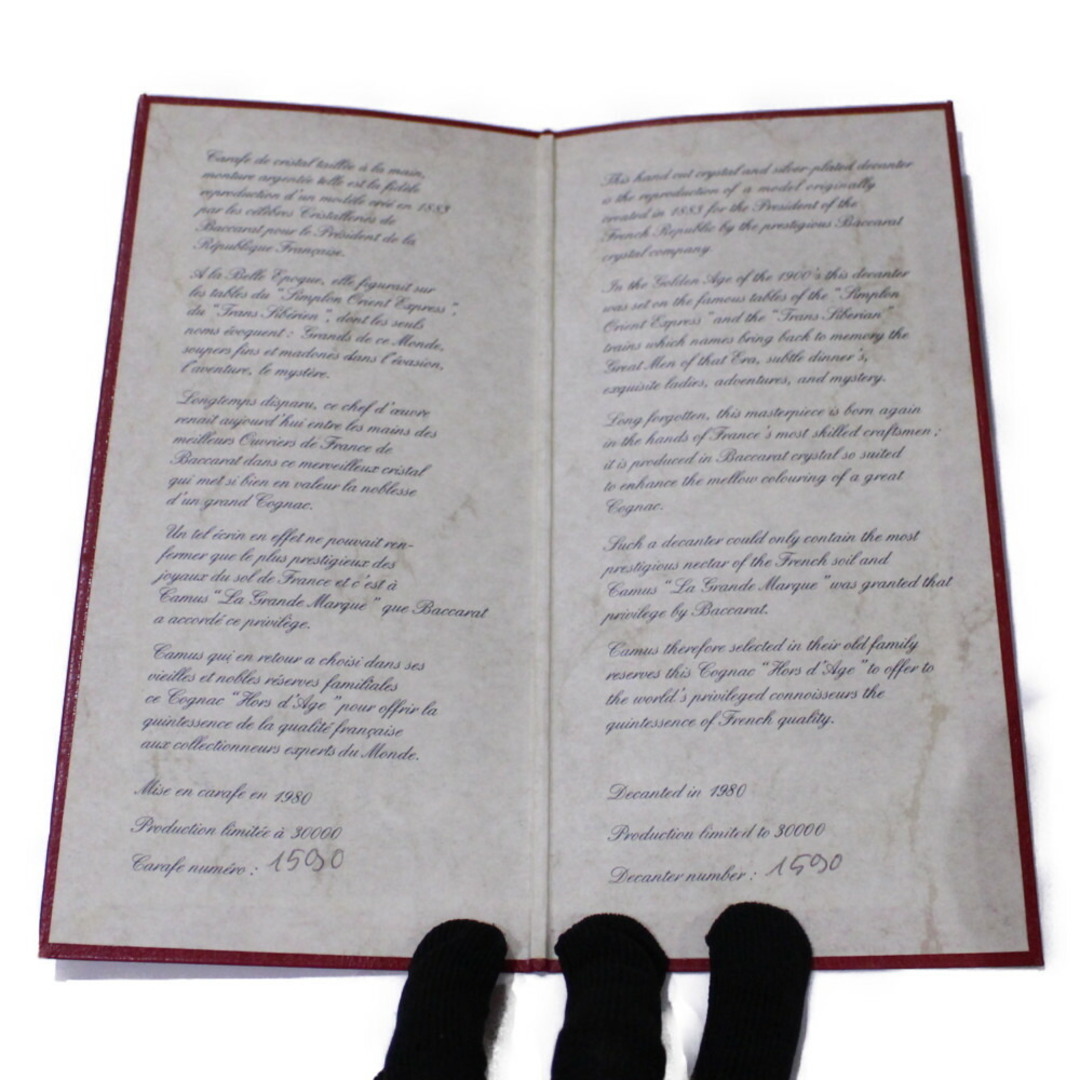 Carafe de cristal taillée à la main,
monture argentée telle est la fidèle
reproduction d'un modèle créé en 1883
par les célèbres Cristalleries de
Baccarat pour le Président de la
République Française.
A la Belle Epoque, elle figurait sur
les tables du "Simplon Orient Express",
du "Trans Sibérien", dont les seuls
noms évoquent : Grands de ce Monde,
soupers fins et madones dans l'évasion,
l'aventure, le mystère.
Longtemps disparu, ce chef d'œuvre
renait aujourd'hui entre les mains des
meilleurs Ouvriers de France de
Baccarat dans ce merveilleux cristal
qui met si bien en valeur la noblesse
d'un grand Cognac.
Un tel écrin en effet ne pouvait ren-
fermer que le plus prestigieux des
joyaux du sol de France et c'est à
Camus "La Grande Marque" que Baccarat
a accordé ce privilège.
Camus qui en retour a choisi dans ses
vieilles et nobles réserves familiales
ce Cognac "Hors d'Age" pour offrir la
quintessence de la qualité française
aux collectionneurs experts du Monde.
Mise en carafe en 1980
Production limitée à 30000
Carafe numéro : 1590
This hand cut crystal and silver-plated decanter
is the reproduction of a model originally
created in 1883 for the President of the
French Republic by the prestigious Baccarat
crystal company
In the Golden Age of the 1900's this decanter
was set on the famous tables of the "Simplon
Orient Express" and the "Trans Siberian"
trains which names bring back to memory the
Great Men of that Era, subtle dinner's,
exquisite ladies, adventures, and mystery.
Long forgotten, this masterpiece is born again
in the hands of France's most skilled craftsmen ;
it is produced in Baccarat crystal so suited
to enhance the mellow colouring of a great
Cognac.
Such a decanter could only contain the most
prestigious nectar of the French soil and
Camus "La Grande Marque" was granted that
privilege by Baccarat.
Camus therefore selected in their old family
reserves this Cognac "Hors d'Age" to offer to
the world's privileged connoisseurs the
quintessence of French quality.
Decanted in 1980
Production limited to 30000
Decanter number : 1590